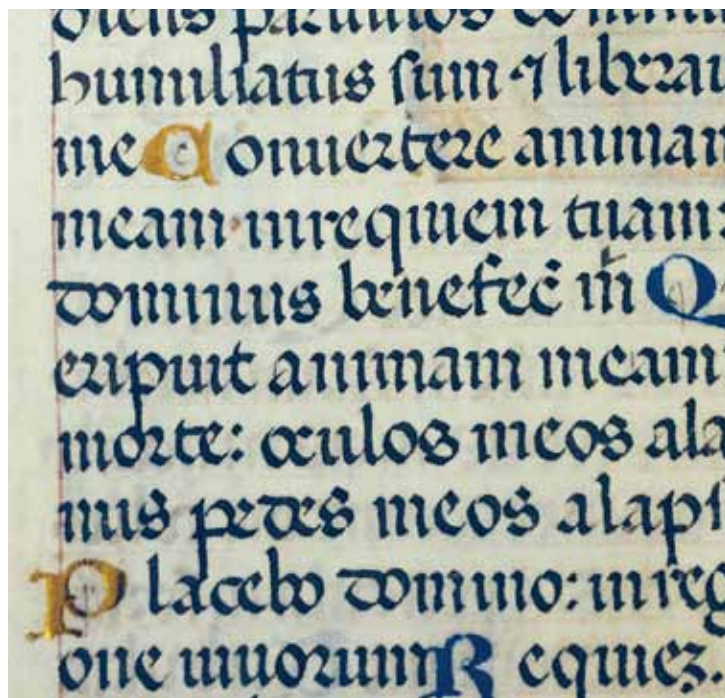 diens paruulos domin
humiliatus sum ⁊ liberaui
me Conuertere animam
meam inrequiem tuam:
dominus benefec̃ m̃ Q
eripuit animam meam
morte: oculos meos ala
mus pedes meos alaps
Placebo domino: inreg
one uiuorum Requiez.